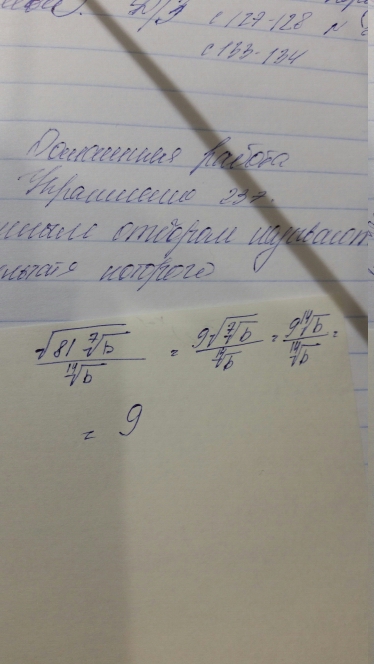 Д/З с 127-128 №
с 133-134
Домашняя работа
Упражнение 237.
отбором называют
которого
\frac{\sqrt{81\sqrt[7]{b}}}{\sqrt[14]{b}} = \frac{9\sqrt{\sqrt[7]{b}}}{\sqrt[14]{b}} = \frac{9\sqrt[14]{b}}{\sqrt[14]{b}} =
= 9